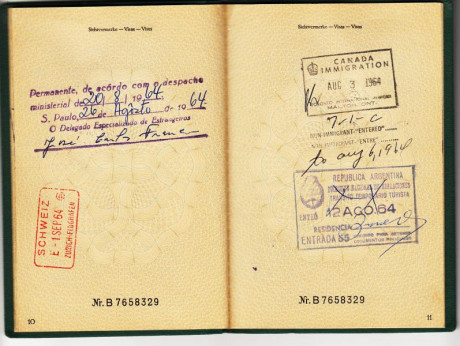 Sichtvermerke — Visas — Visas
Permanente, de acôrdo com o despacho
ministerial de 20/8/1964.
S. Paulo, 26 de Agôsto de 1964.
O Delegado Especializado de Estrangeiros
José Carlos
SCHWEIZ
E - 1. SEP. 64
ZÜRICH-FLUGHAFEN
Nr. B 7658329
10
Sichtvermerke — Visas — Visas
CANADA
IMMIGRATION
AUG 3 1964
MALTON, ONT.
7-1-c
NON-IMMIGRANT "ENTERED"
NON-IMMIGRANT "ENTRÉ"
to aug 6, 1964
REPUBLICA ARGENTINA
TRANSITO TEMPORARIO TURISTA
ENTRO 12 AGO. 64
RESIDENCIA
ENTRADA 55
Nr. B 7658329
11